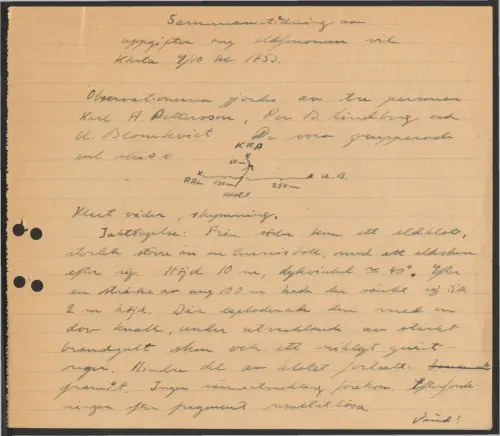 Sammanställning av
uppgifter ang eldfenomen vid
Karla 9/10 kl 1753.
Observationerna gjordes av tre personer
Karl A. Pettersson, Per B. Lindberg och
U. Blomkvist De voro grupperade
enl skiss
KAP
PBL 130m 250m U.B.
Klart väder, skymning.
Iakttagelse: Från söder kom ett eldklot,
storlek större än en tennisboll, med ett eldsken
efter sig. Höjd 10 m, dykvinkel ≈ 40°. Efter
en sträcka av ang 100 m hade den sänkt sig till
2 m höjd. Där exploderade den med en
dov knall, under utvecklande av starkt
brandgult sken och ett riktigt gnist-
regn. Mindre del av klotet fortsatte
framåt. Ingen värmeutveckling förekom. Efterforsk-
ningar efter fragment resultatlösa
Vänd!